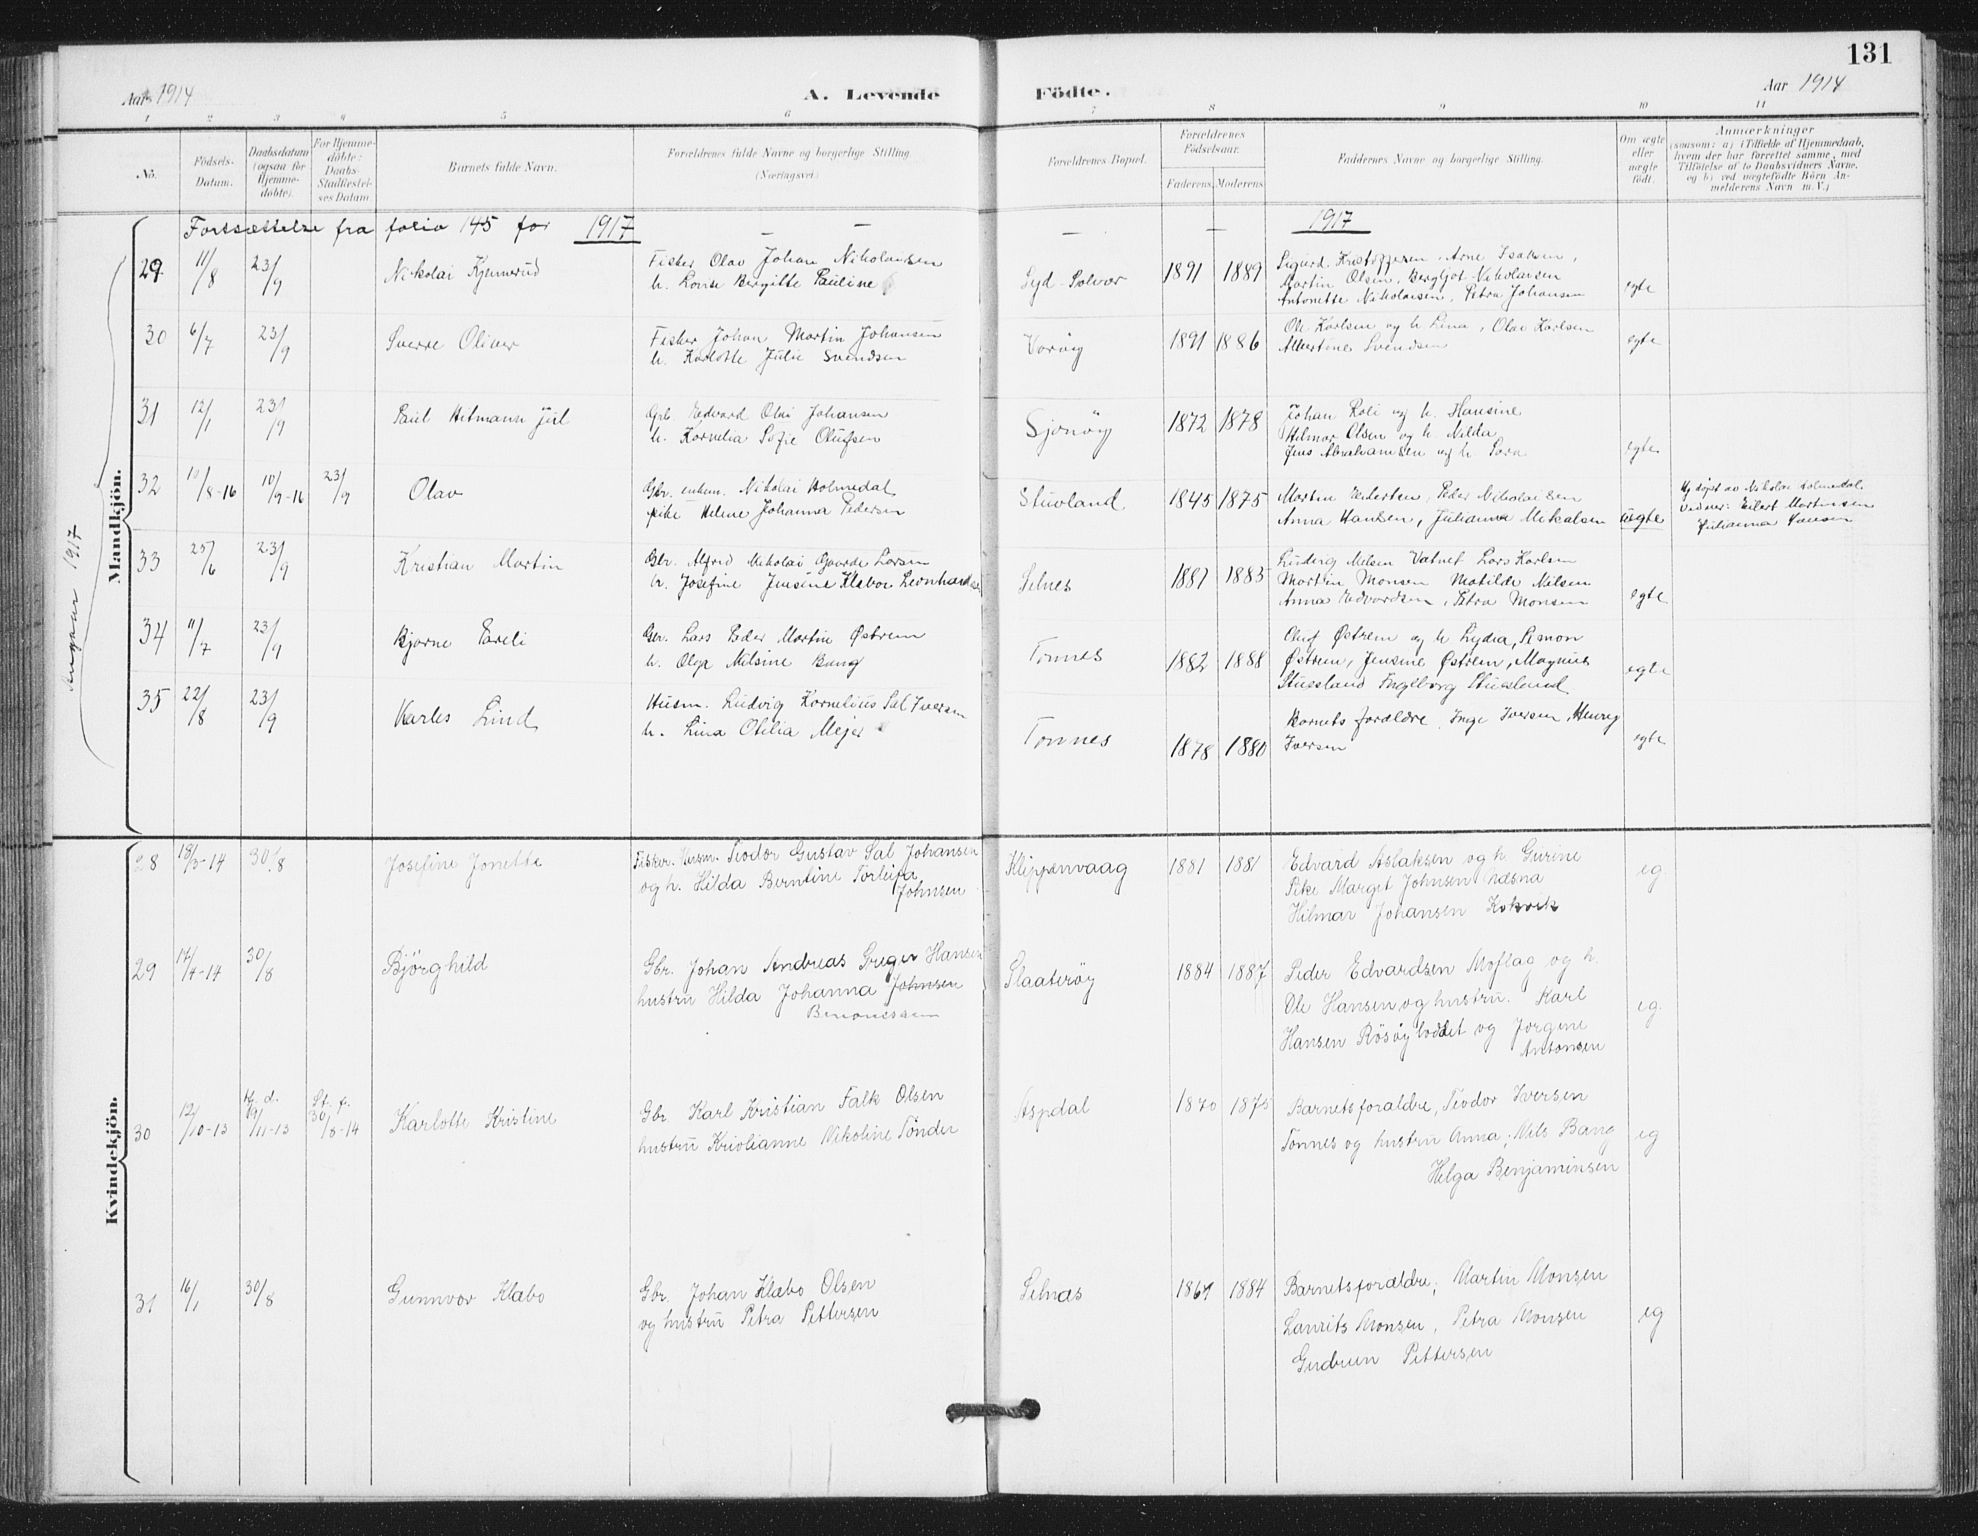 131
Aar 1914
A. Levende Födte.
Aar 1914
1 2 3 4 5 6 7 8 9 10 11
No.
Födsels-Datum.
Daabsdatum (ogsaa for Hjemme-döbte).
For Hjemme-döbte: Daabs-Stadfæstel-ses Datum.
Barnets fulde Navn.
Forældrenes fulde Navne og borgerlige Stilling (Næringsvei)
Forældrenes Bopæl.
Forældrenes Födselsaar.
Faderens. Moderens.
Faddernes Navne og borgerlige Stilling.
Om ægte eller uægte födt.
Anmærkninger
(saasom: a) i Tilfælde af Hjemmedaab,
hvem der har forrettet samme, med
Tilföielse af to Daabsvidners Navne,
og b) ved uægtefödte Börn An-
melderens Navn m. V.)
Mandkjön.
Angaar 1917
Fortsættelse fra folio 145 for 1917 — — — — 1917
29 11/8 23/9 Nikolai Kjennerud
Fisker Olav Johan Nikolaisen
h. Lovise Birgitte Pauline
Syd-Solvær 1891 1889
Sigurd Kristoffersen, Arne Isaksen,
Martin Olsen, Bergljot Nikolaisen
Antonette Nikolaisen, Petra Johansen
egte
30 6/7 23/9 Sverre Oliver
Fisker Johan Martin Johansen
h. Karlotte Julie Svendsen
Varöy 1891 1886
Ole Karlsen og h Lina, Olav Karlsen
Albertine Svendsen
egte
31 12/1 23/9 Paul Hitmann Jul
Gbr. Edvard Olai Johansen
h. Kornelia Sofie Olufsen
Sjonöy 1872 1878
Johan Roli og h. Hansine
Hilmar Olsen og h Nilda
Jens Abrahamsen og h Lora
egte
32 10/8-16 10/9-16 23/9 Olav
Gbr. enkem. Nikolai Holmedal
pike Helene Johanna Pedersen
Stuvland 1845 1875
Martin Edertsen, Peder Nikolaisen
Anna Hansen, Julianna Mikalsen
uegte
Hj döpt av Nikolai Holmedal.
Vidner: Eilert Martinsen
Julianna Hansen
33 25/6 23/9 Kristian Martin
Gbr. Alfred Nikolai Gaarde Larsen
h. Josefine Jensine Klabo Leonhardsen
Selnes 1881 1885
Ludvig Nilsen Vatnet Lars Karlsen
Martin Monsen Matilde Nilsen
Anna Edvardsen, Petra Monsen
egte
34 11/7 23/9 Bjarne Pareli
Gbr. Lars Peder Martin Østrem
h. Olga Nilsine Bang
Tonnes 1882 1888
Oluf Østrem og h Lydia, Simon
Østrem, Jensine Østrem, Magnus
Stuesland Ingeborg Stuesland
egte
35 22/8 23/9 Karles Lind
Husm. Ludvig Kornelius Sal Iversen
h. Lina Otilia Mejer
Tonnes 1878 1880
Barnets forældre, Inge Iversen, Henry
Iversen
egte
Kvindekjön.
28 18/3-14 30/8 Josefine Jonette
Fisker. Husm. Teodor Gustav Sal Johansen
og h. Hilda Berntine Torleifa
Johnsen
Klippenvaag 1881 1881
Edvard Aslaksen og h. Gurine
Pike Margit Johnsen Næsna
Hilmar Johansen Kokvik
eg.
29 17/4-14 30/8 Bjórghild
Gbr. Johan Andreas Greger Hansen
hustru Hilda Johanna Johnsen
Benonissaen
Slaateröy 1884 1887
Peder Edvardsen Moflag og h.
Ole Hansen og hustru. Karl
Hansen Rösöybodlet og Jorgine
Antonsen
eg.
30 12/10-13 Hj. d. 9/11-13 St. f. 30/8-14 Karlotte Kristine
Gbr. Karl Kristian Falk Olsen
hustru Kristianne Nikoline Tönder
Aspdal 1870 1875
Barnets foraldre, Teodor Iversen
Tonnes og hustru Anna; Nils Bang
Helga Benjaminsen
eg
31 16/1 30/8 Gunnvor Klabo
Gbr. Johan Klabo Olsen
og hustru Petra Pettersen
Selnas 1867 1884
Barnets forældre; Martin Monsen
Laurits Monsen, Petra Monsen
Gudrun Pettersen
eg